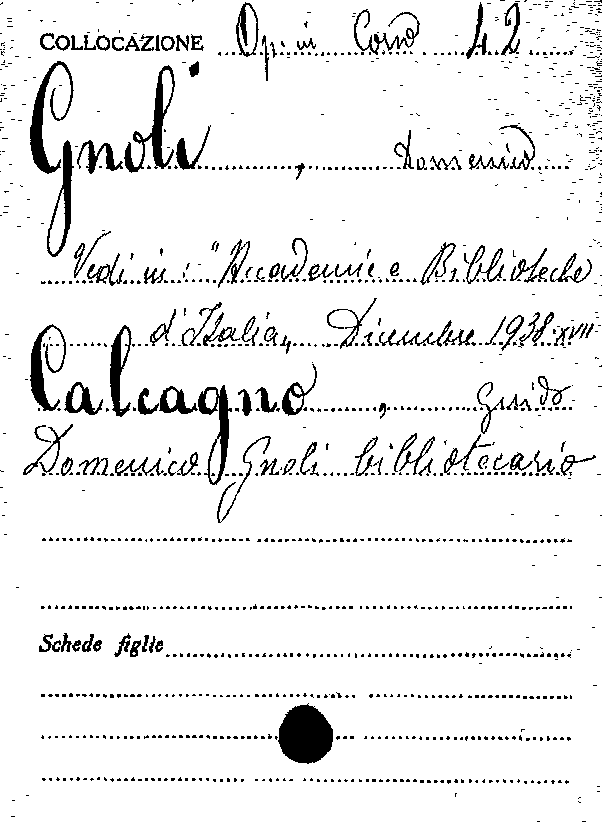 COLLOCAZIONE Op. in Cons 42
Gnoli, Domenico
Vedi in: "Accademie e Biblioteche
d'Italia„ Dicembre 1938·XVII
Calcagno, Guido
Domenico Gnoli bibliotecario
Schede figlie